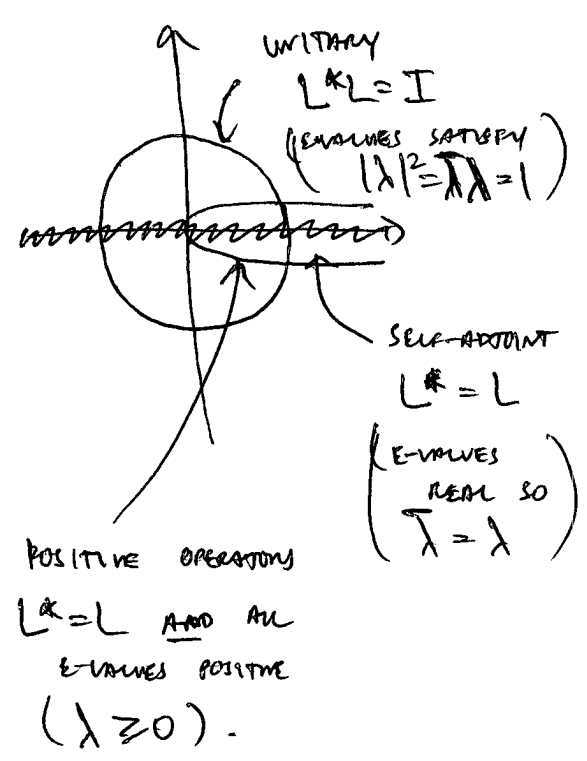 UNITARY
L*L = I
(E-VALUES SATISFY
|λ|² = λ̄λ = 1)
SELF-ADJOINT
L* = L
(E-VALUES
REAL SO
λ̄ = λ)
POSITIVE OPERATORS
L* = L AND ALL
E-VALUES POSITIVE
(λ ≥ 0).